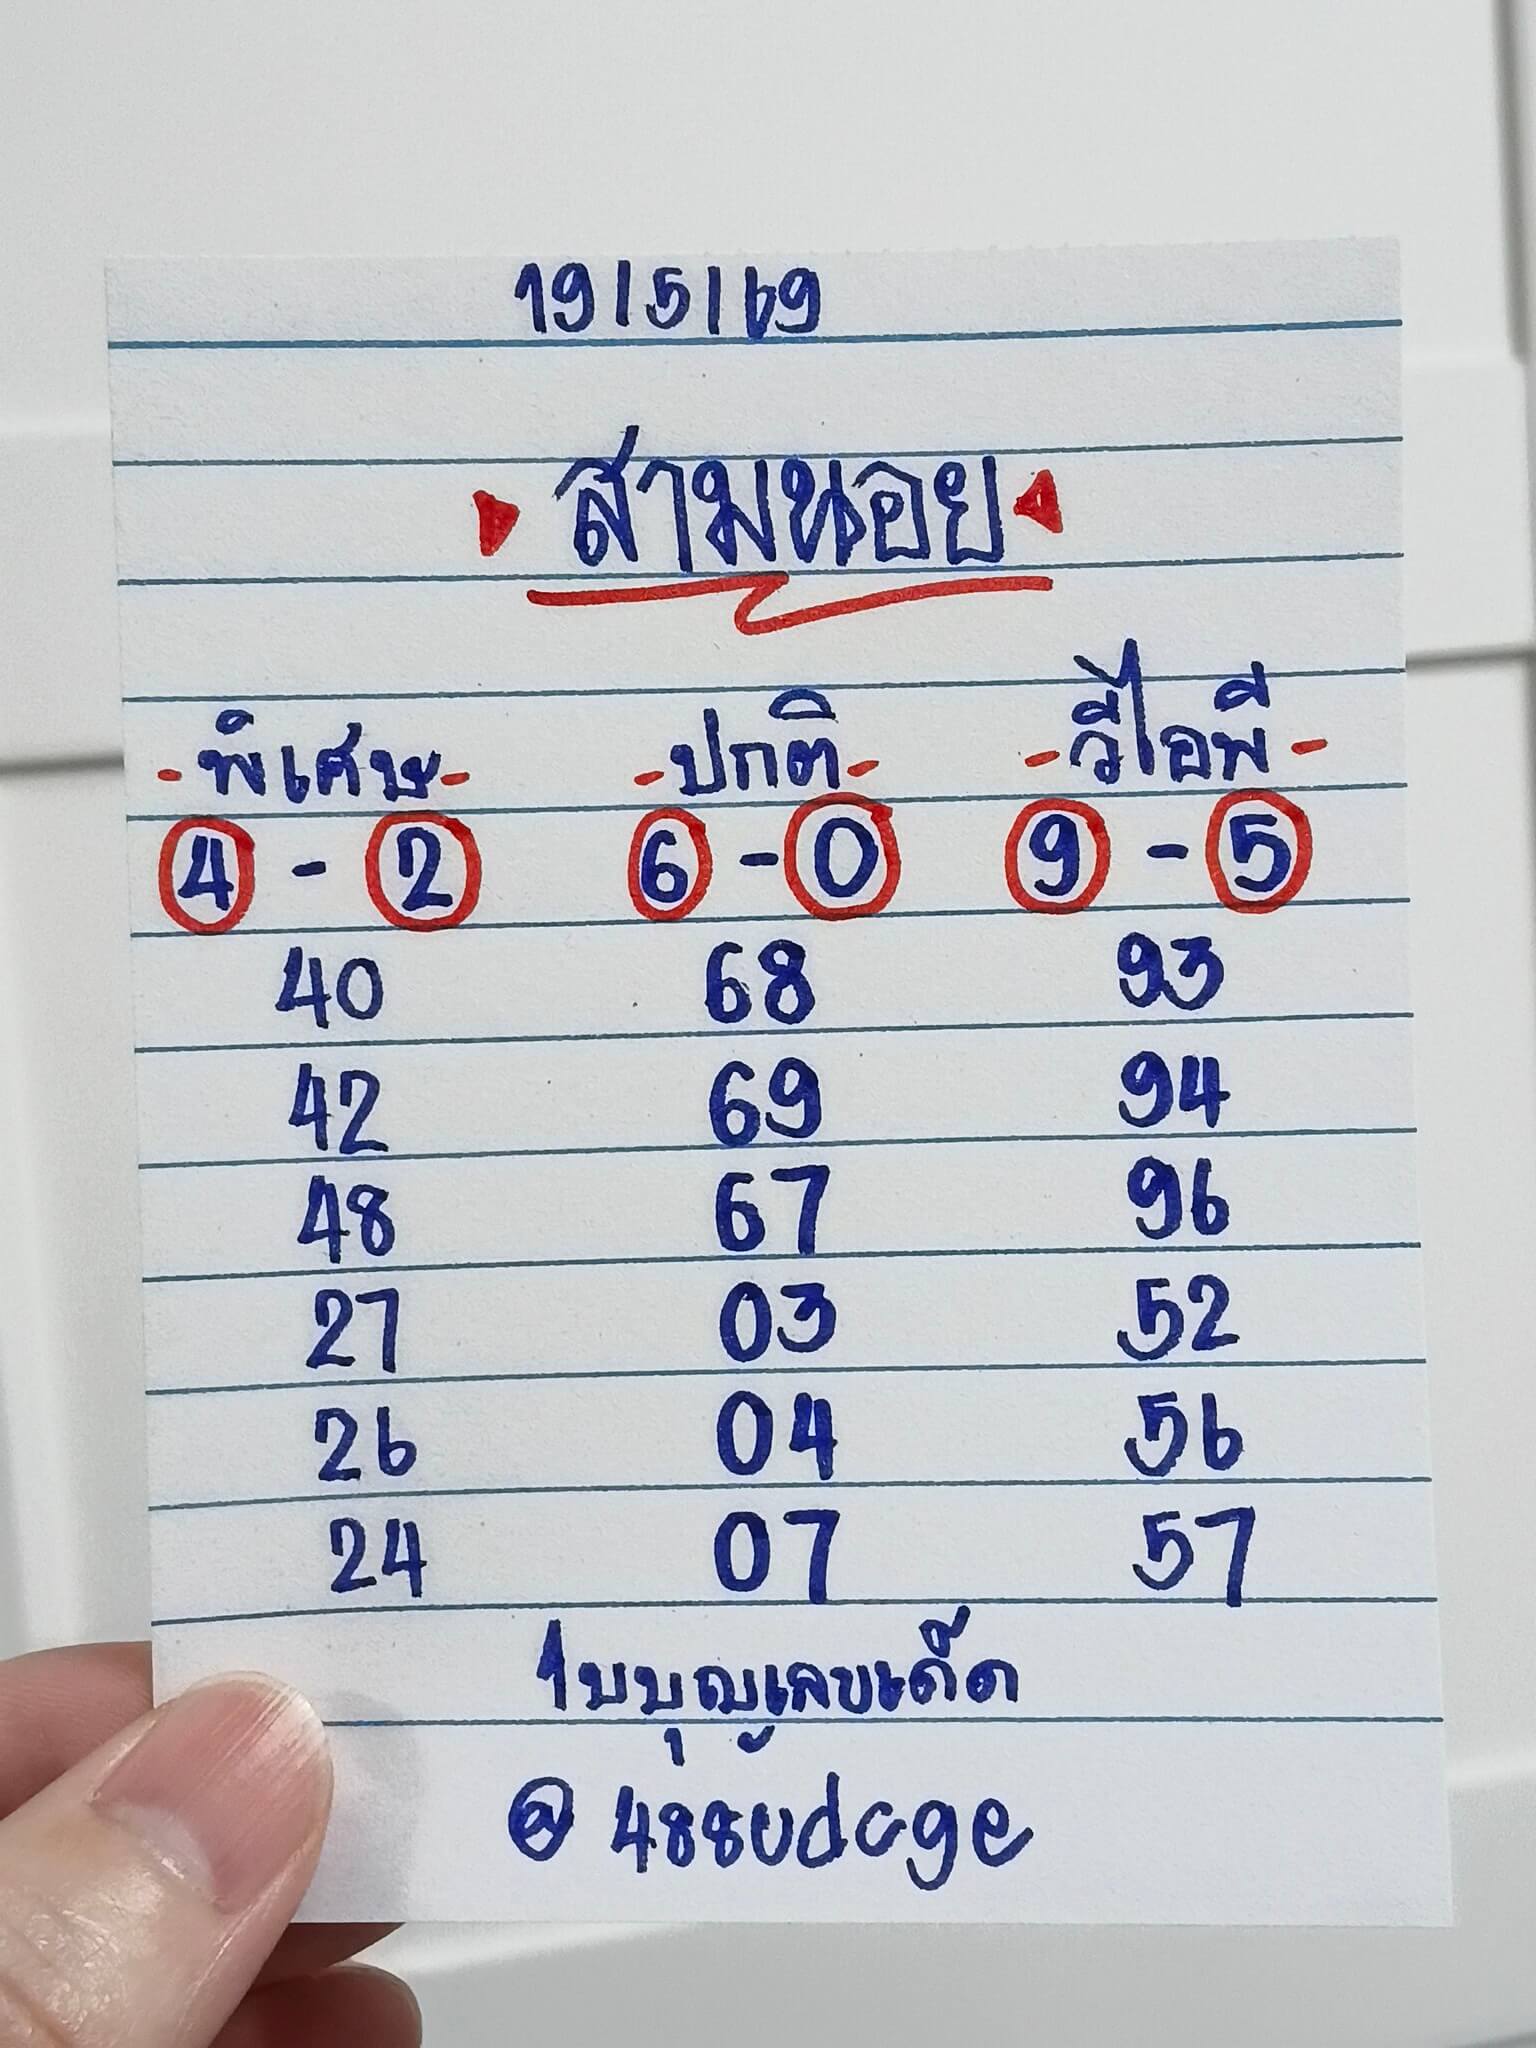 19/5/69
สามนอย
-พิเศษ- -ปกติ- -วีไอพี-
4 - 2 6 - 0 9 - 5
40 68 93
42 69 94
48 67 96
27 03 52
26 04 56
24 07 57
1บบุญเลขเด็ด
@488udcge